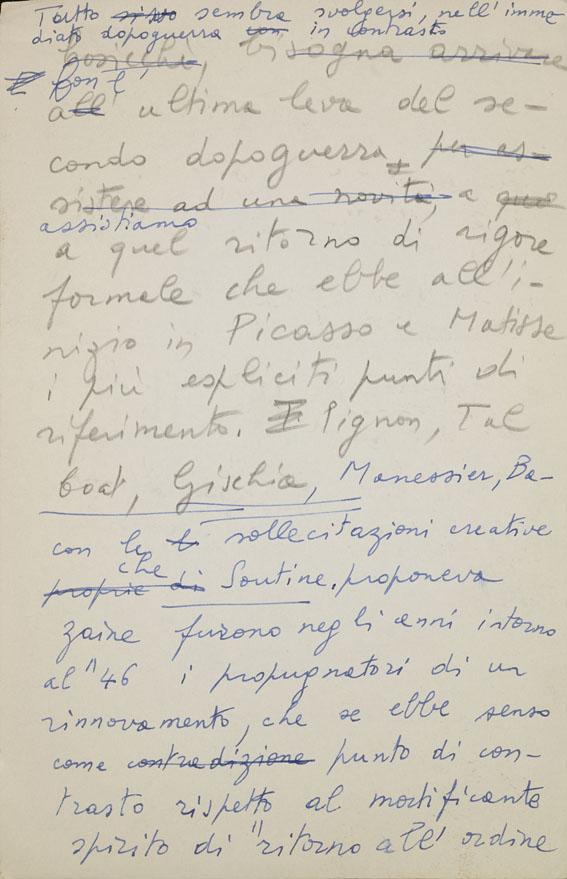 Tutto sembra svolgersi, nell'imme
diato dopoguerra con in contrasto
Cosicchè, bisogna arrivare
Con l'
all' ultima leva del se-
condo dopoguerra, per as-
sistere ad una novità, a quo
assistiamo
a quel ritorno di rigore
formale che ebbe all'i-
nizio in Picasso e Matisse
i più espliciti punti di
riferimento. I Pignon, Tal
boat, Gischia, Manessier, Ba-
con le sollecitazioni creative
che
proprie di Soutine. proponeva
zaine furono negli anni intorno
al "46 i propugnatori di un
rinnovamento, che se ebbe senso
come contradizione punto di con-
trasto rispetto al mortificante
spirito di "ritorno all' ordine